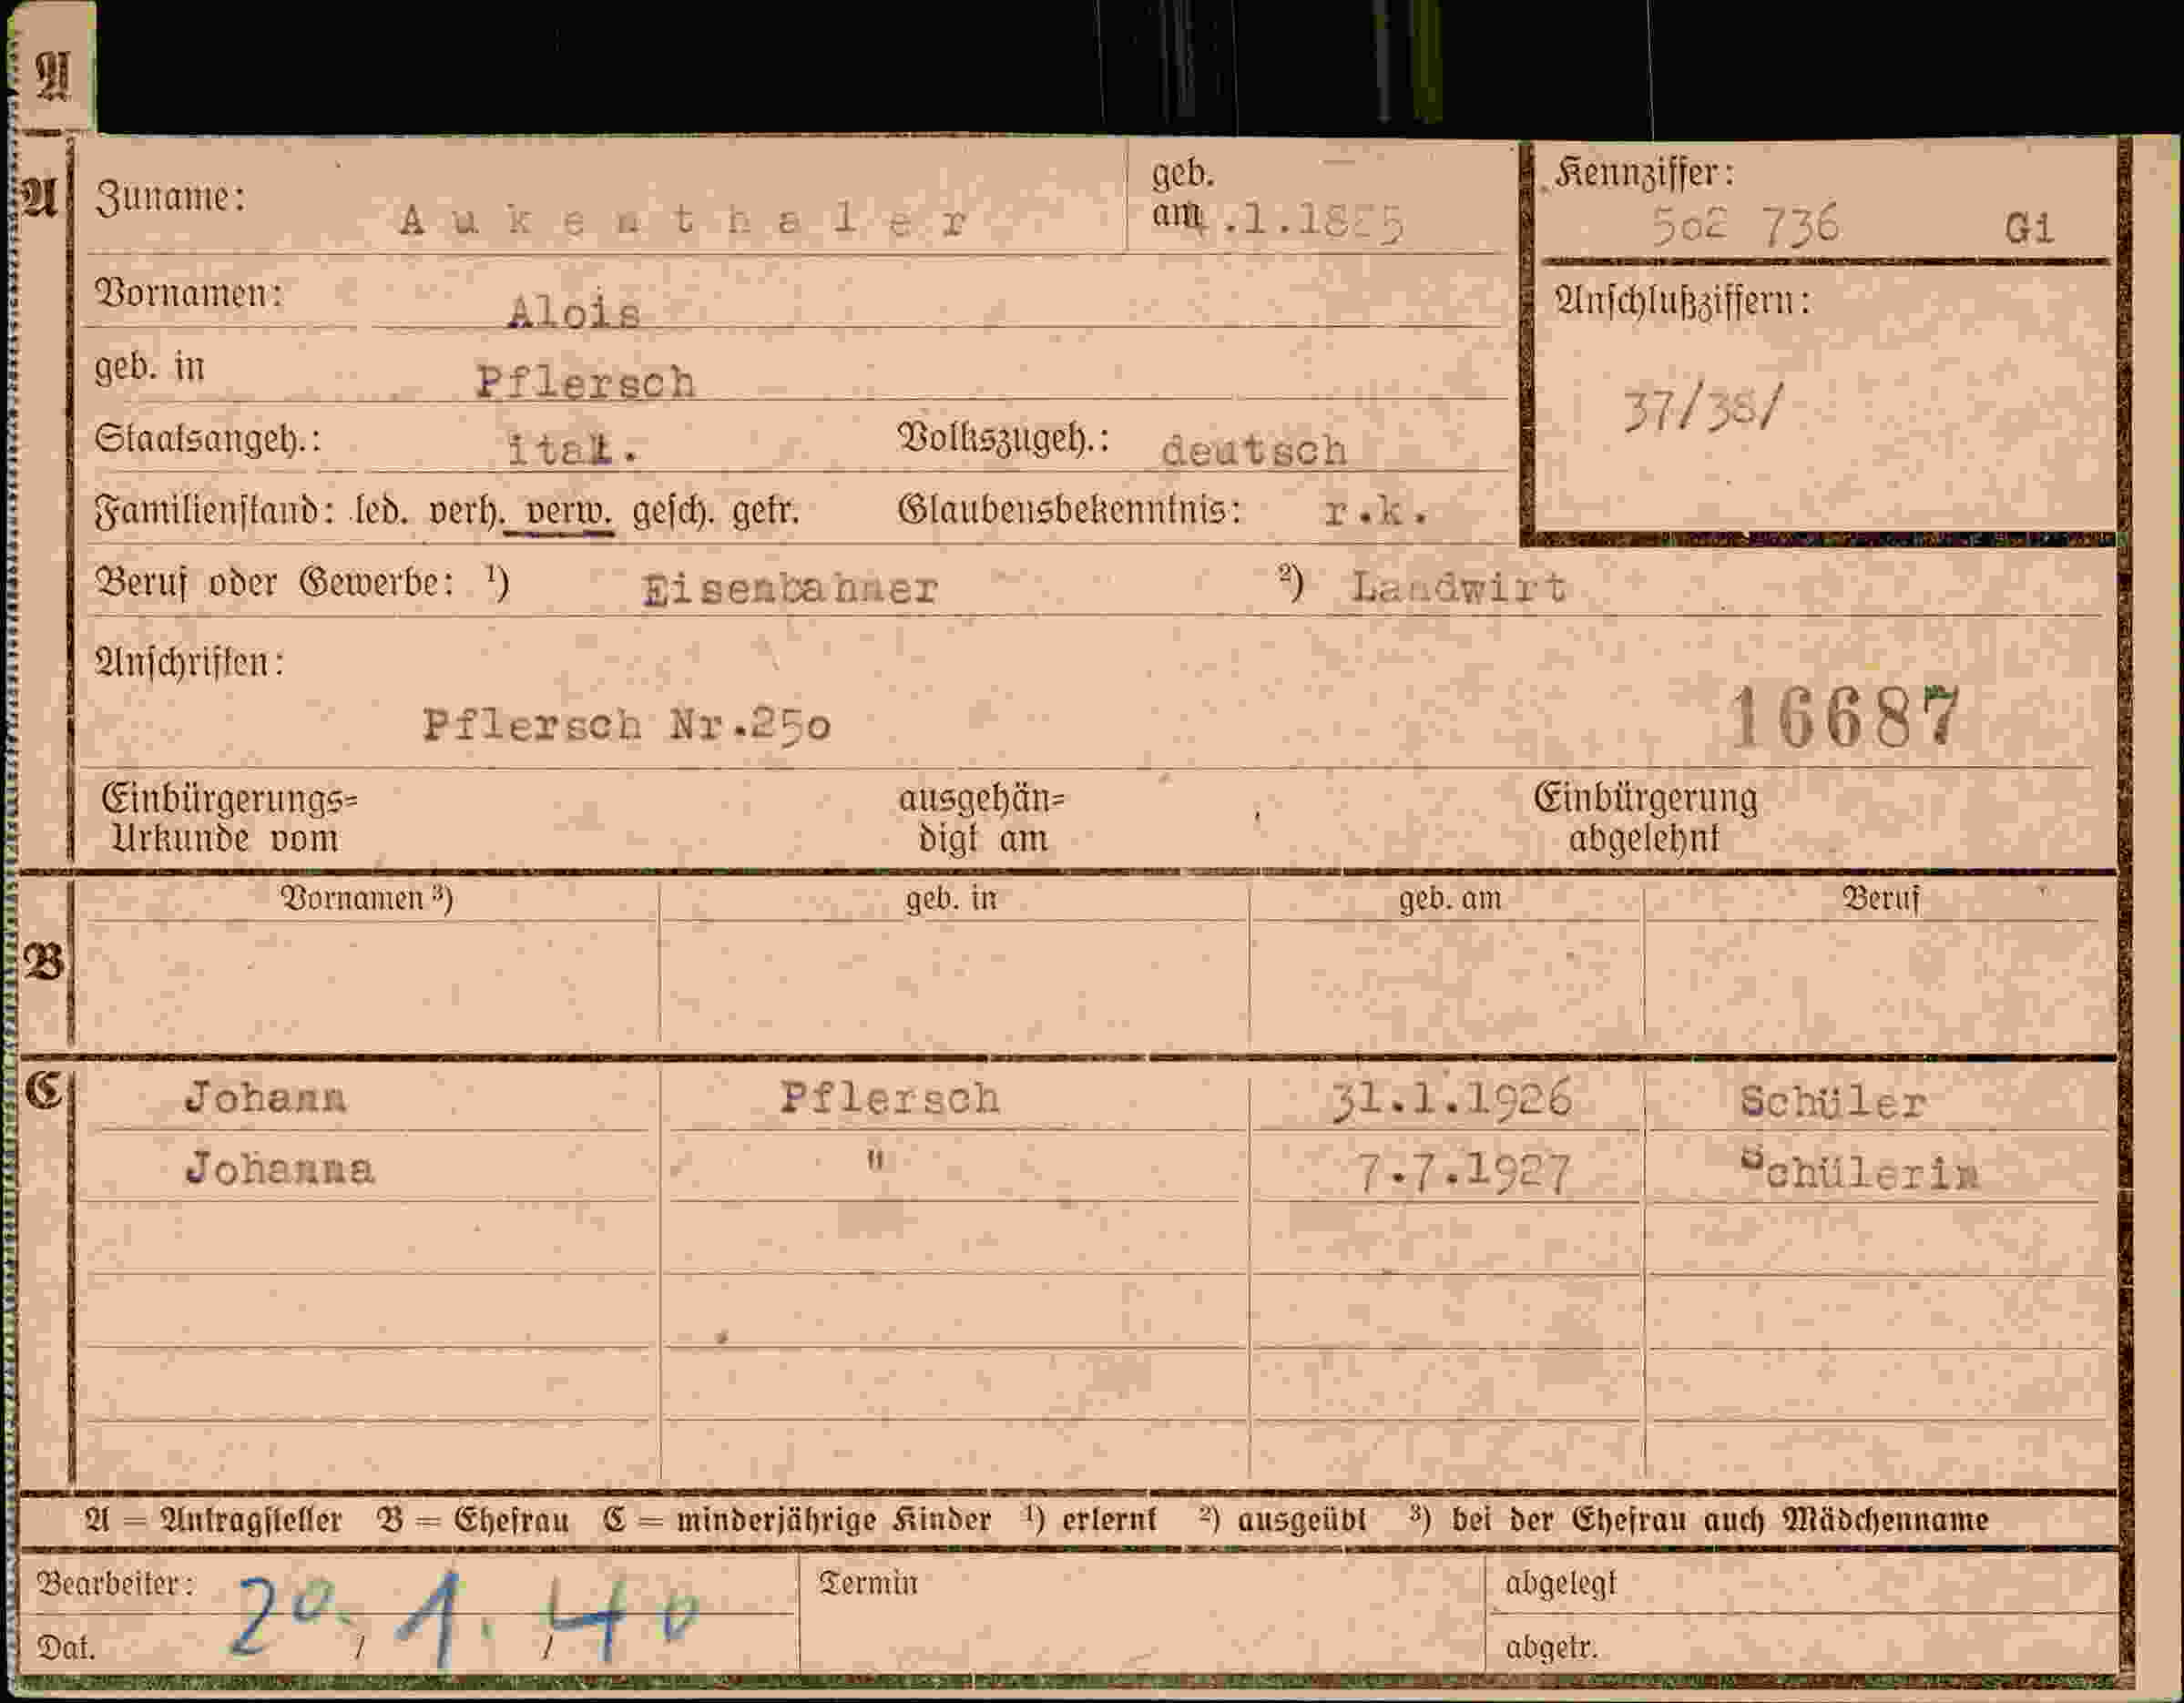 A
A Zuname: Aukenthaler geb. am .1.18 5 Kennziffer: 502 736 G1
Vornamen: Alois Anschlußziffern:
geb. in Pflersch 37/38/
Staatsangeh.: ital. Volkszugeh.: deutsch
Familienstand: led. verh. verw. gesch. getr. Glaubensbekenntnis: r.k.
Beruf oder Gewerbe: ¹) Eisenbahner ²) Landwirt
Anschriften:
Pflersch Nr.250 16687
Einbürgerungs= ausgehän= Einbürgerung
Urkunde vom digt am abgelehnt
Vornamen ³) geb. in geb. am Beruf
B
C Johann Pflersch 31.1.1926 Schüler
Johanna " 7.7.1927 Schülerin
A = Antragsteller B = Ehefrau C = minderjährige Kinder ¹) erlernt ²) ausgeübt ³) bei der Ehefrau auch Mädchenname
Bearbeiter: Termin abgelegt
Dat. 20. 1. 40 abgetr.